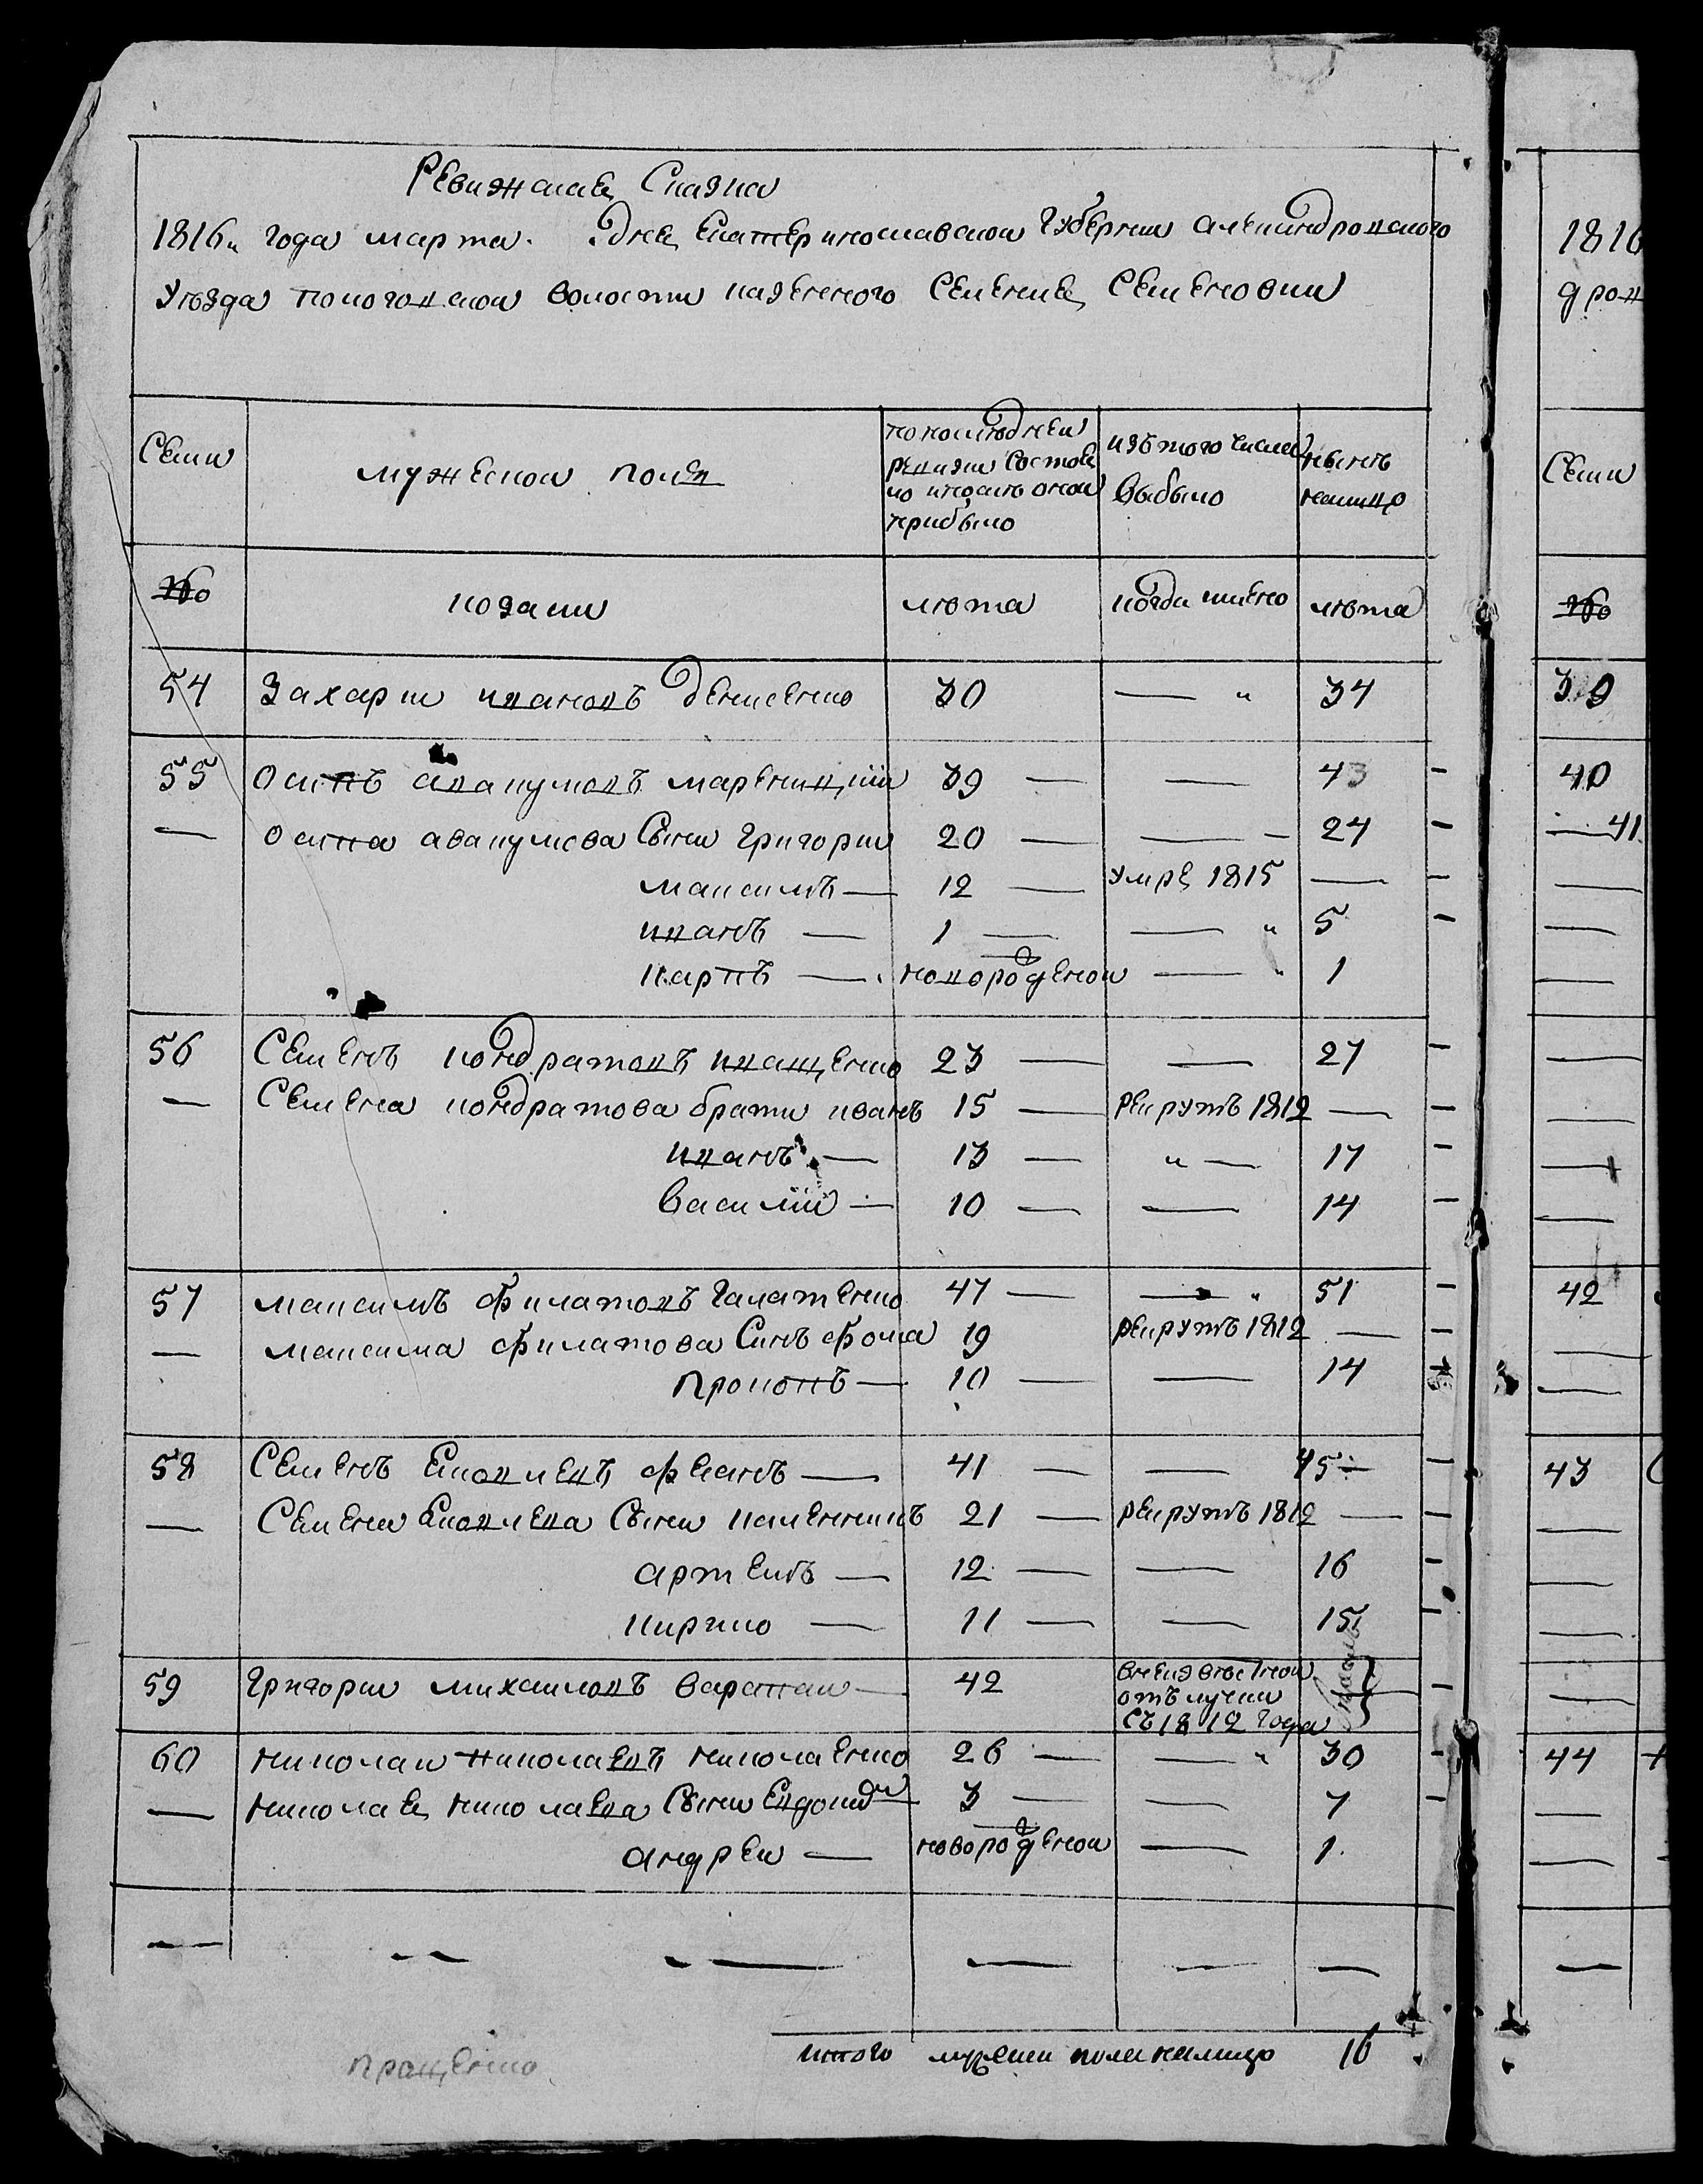 Ревижская Сказка
1816 года марта. дня Екатеринославской Губернии александровского
Уезда пологовской волости казенного Селения Семеновки
Семи
мужеской полъ
по последней ревизии Состояло и после оной прибыло
изъ того числа выбыло
ныне налицо
№
козаки
лета
когда имено
лета
54 Захарии ивановъ денисенко 30 — " 34
55 Осипъ авакумовъ мареницкій 39 — — 43
— Осипа авакумова Сыни Григории 20 — — 24
максимъ — 12 — умре 1815 —
иванъ — 1 — — " 5
карпъ — новорожденои — " 1
56 Семенъ кондратовъ иващенко 23 — — 27
— Семена кондратова брати иванъ 15 — рекрутъ 1812 —
иванъ — 13 — " — 17
василій — 10 — — 14
57 максимъ филатовъ Галатенко 47 — — " 51
— максима филатова Синъ фома 19 рекрутъ 1812 —
прокопъ — 10 — — 14
58 Семенъ Яковлевъ — 41 — — 45 —
— Семена Яковлева Сыни калениикъ 21 — рекрутъ 1812 —
артемъ — 12 — — 16
кирило — 11 — — 15
59 Григории михаиловъ варапаи — 42 внеизвестнои отълучки Съ 1812 года —
60 николаи николаевъ николаенко 26 — — " 30
— николае николаева Сыни Евдоким 3 — — 7
андреи — новорожденои — 1
— — — — — —
итого мужеска пола налицо 16
пращенко
1816
дров
Семи
№
39
40
— 41
42
43
44